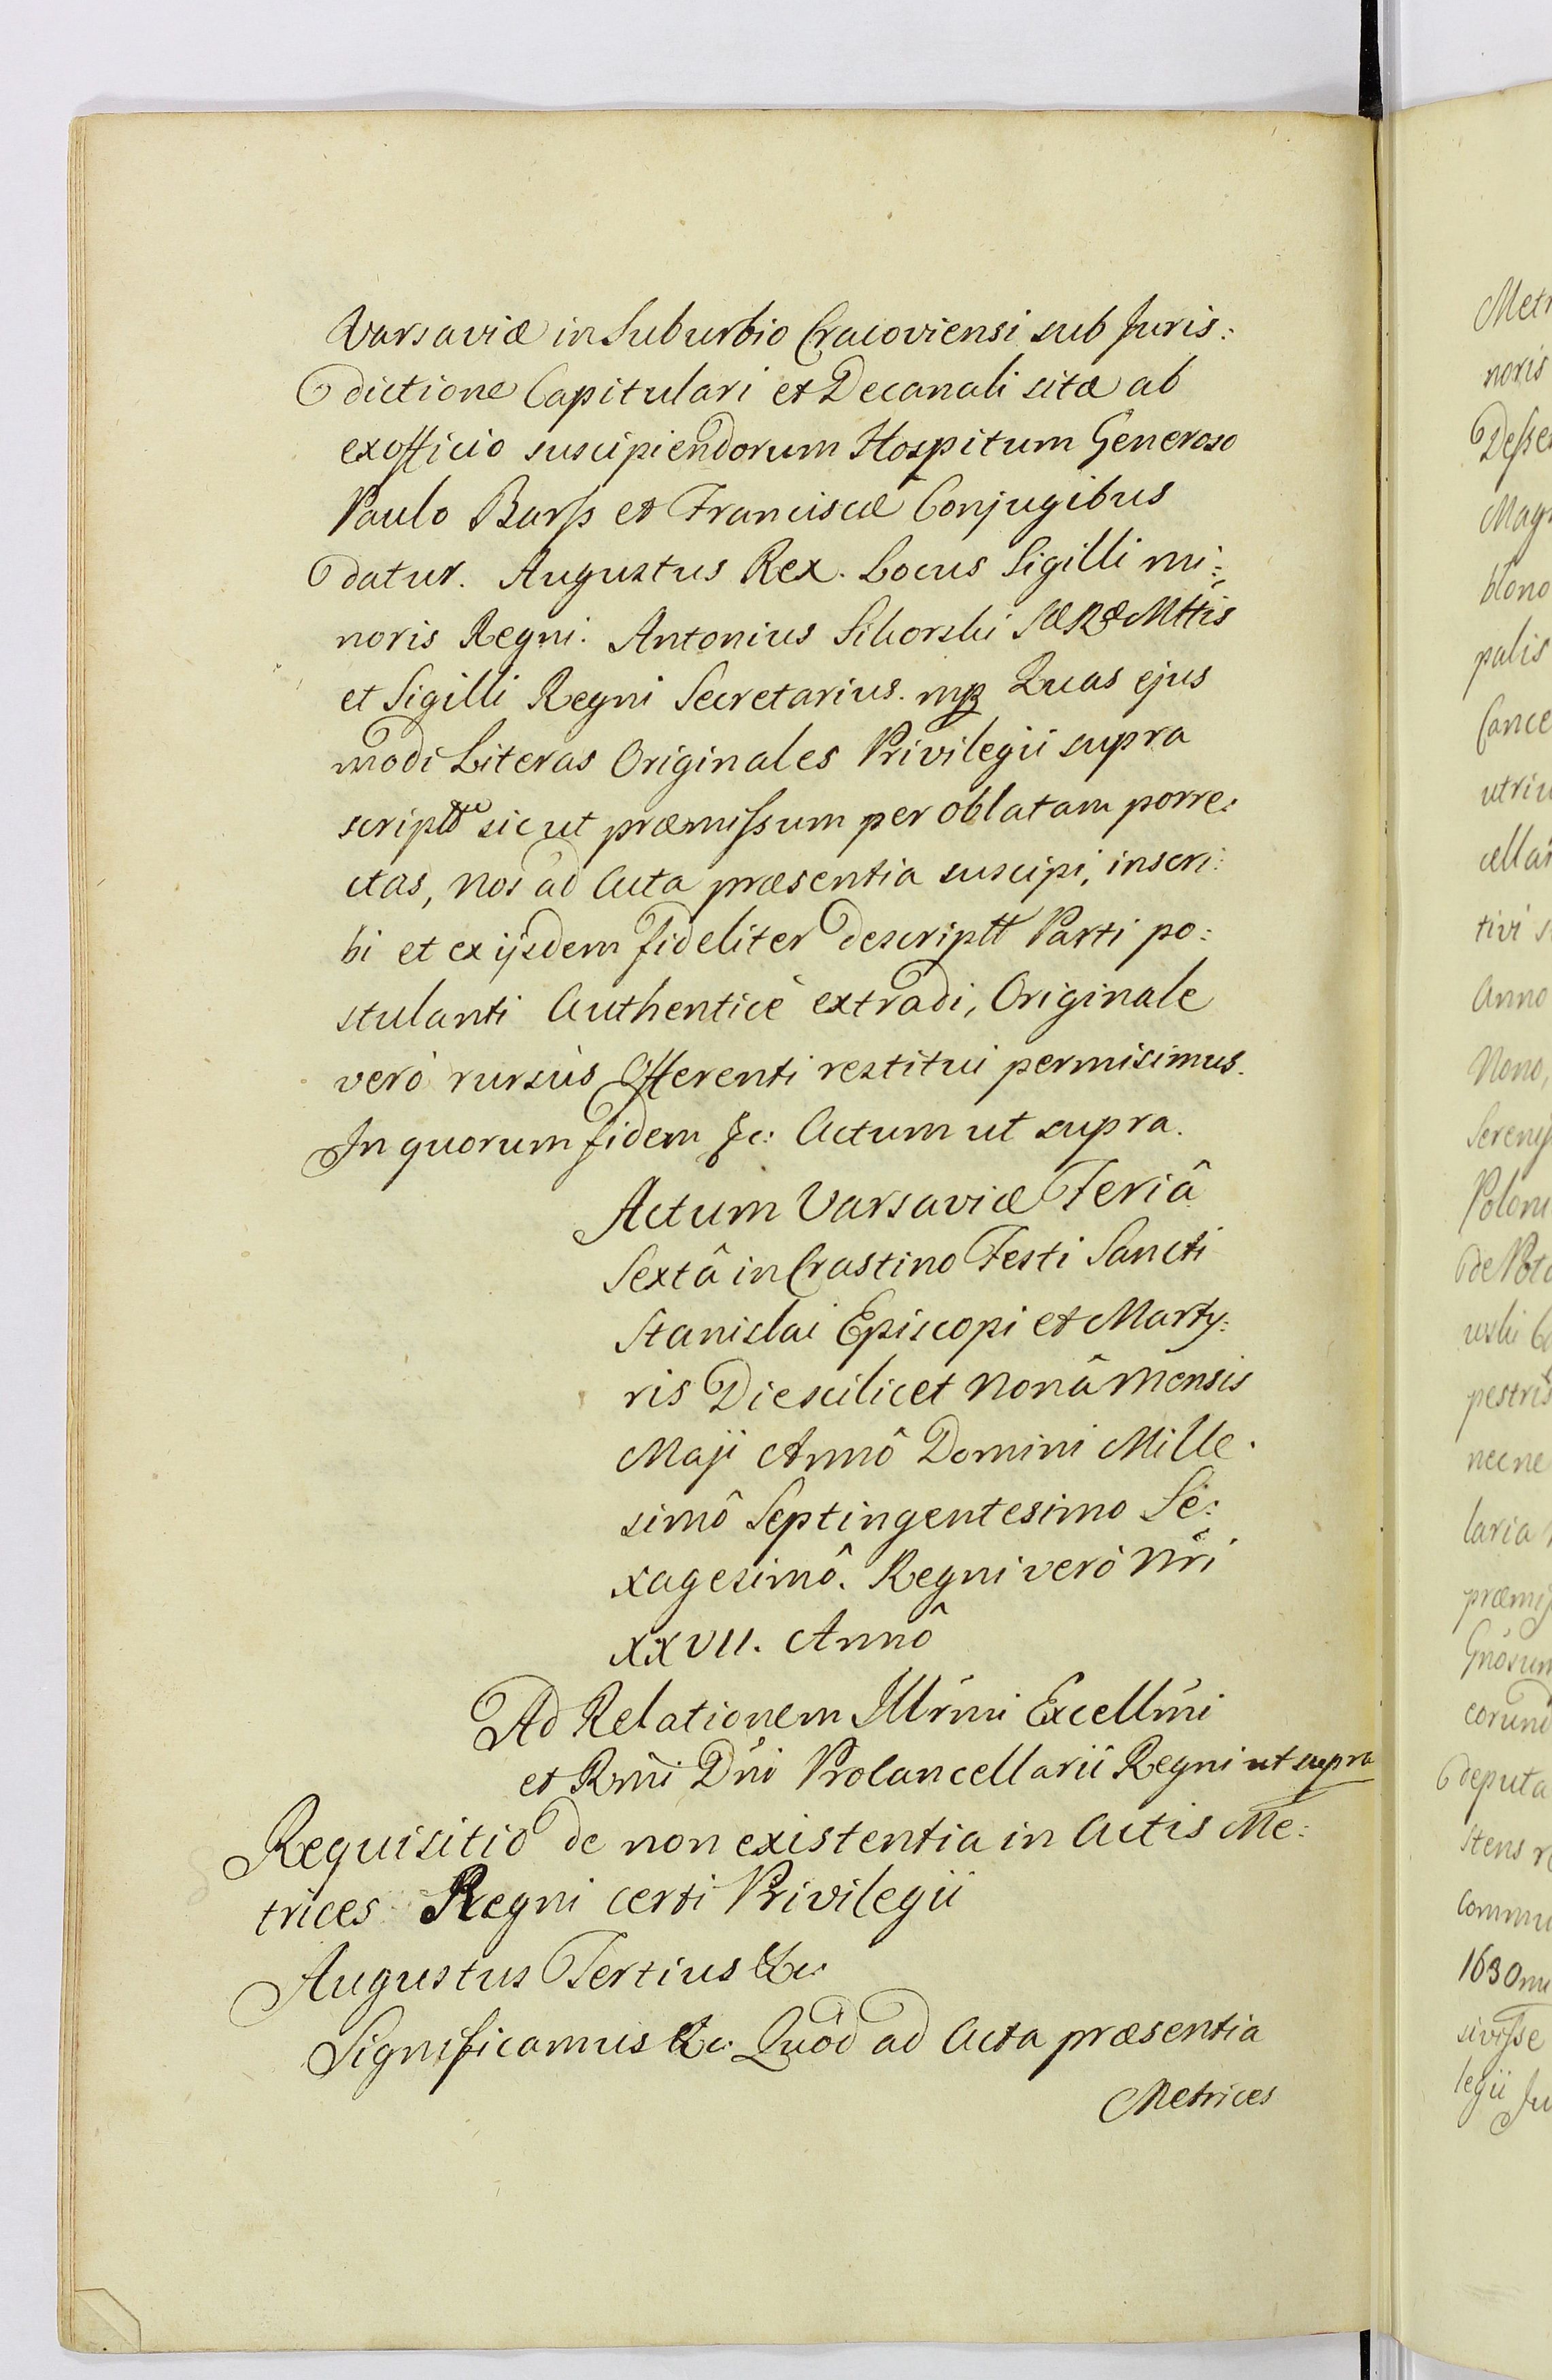 Varsaviæ in Suburbio Cracoviensi sub Juris:
dictione Capitulari et Decanali sitæ ab
exofficio suscipiendorum Hospitum Generoso
Paulo Barſs et Franciscæ Conjugibus
datur. Augustus Rex. Locus Sigilli mi:
noris Regni. Antonius Sikorski SæRæMttis
et Sigilli Regni Secretarius. mp Quas ejus
modi Literas Originales Privilegii supra
scriptt sicut præmiſsum per oblatam porre:
ctas, Nos ad Acta præsentia suscipi, inscri:
bi et ex ijsdem fideliter descriptt Parti po:
stulanti Authenticè extradi, Originale
verò rursùs Offerenti restitui permisimus.
In quorum fidem &c: Actum ut supra.
Actum Varsaviæ Feriâ
Sextâ in Crastino Festi Sancti
Stanislai Episcopi et Marty:
ris Die scilicet Nonâ Mensis
Maji Annô Domini Mille.
simô Septingentesimo Se:
xagesimô. Regni verò Nrĩ
XXVII. Annô
Ad Relationem Illrmi Excellmi
et Rmi Dni ProCancellarii Regni ut supra
Requisitio de non existentia in Actis Me:
trices Regni certi Privilegii
Augustus Tertius &c:
Significamus &c: Quôd ad Acta præsentia
Metrices
Metr
noris
Deſse
Mag
blono
palis
Cance
utriu
cella
tivi
Anno
Nono,
Sereniſ
Polon
de Poto
wski
pestris
necne
laria
præmiſ
Gnosum
corund
deputa
stens
commu
1630
siviſse
legii Ju